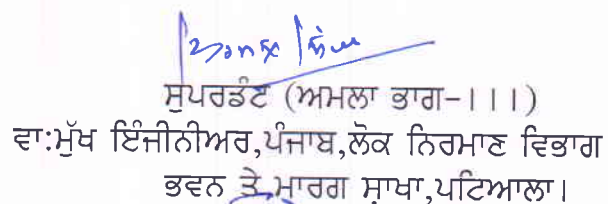 ਸੁਪਰਡੰਟ (ਅਮਲਾ ਭਾਗ-।।।)
ਵਾ:ਮੁੱਖ ਇੰਜੀਨੀਅਰ,ਪੰਜਾਬ,ਲੋਕ ਨਿਰਮਾਣ ਵਿਭਾਗ
ਭਵਨ ਤੇ ਮਾਰਗ ਸ਼ਾਖਾ,ਪਟਿਆਲਾ।